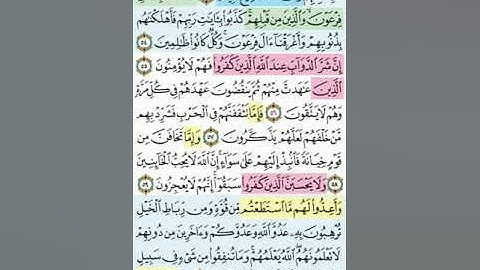 فِرْعَوْنَ وَالَّذِينَ مِن قَبْلِهِمْ كَذَّبُوا بِآيَاتِ رَبِّهِمْ فَأَهْلَكْنَاهُم
بِذُنُوبِهِمْ وَأَغْرَقْنَا آلَ فِرْعَوْنَ وَكُلٌّ كَانُوا ظَالِمِينَ ٥٤
إِنَّ شَرَّ الدَّوَابِّ عِندَ اللَّهِ الَّذِينَ كَفَرُوا فَهُمْ لَا يُؤْمِنُونَ ٥٥
الَّذِينَ عَاهَدتَّ مِنْهُمْ ثُمَّ يَنقُضُونَ عَهْدَهُمْ فِي كُلِّ مَرَّةٍ
وَهُمْ لَا يَتَّقُونَ ٥٦ فَإِمَّا تَثْقَفَنَّهُمْ فِي الْحَرْبِ فَشَرِّدْ بِهِم
مَّنْ خَلْفَهُمْ لَعَلَّهُمْ يَذَّكَّرُونَ ٥٧ وَإِمَّا تَخَافَنَّ مِن
قَوْمٍ خِيَانَةً فَانبِذْ إِلَيْهِمْ عَلَىٰ سَوَاءٍ إِنَّ اللَّهَ لَا يُحِبُّ الْخَائِنِينَ
٥٨ وَلَا يَحْسَبَنَّ الَّذِينَ كَفَرُوا سَبَقُوا إِنَّهُمْ لَا يُعْجِزُونَ ٥٩
وَأَعِدُّوا لَهُم مَّا اسْتَطَعْتُم مِّن قُوَّةٍ وَمِن رِّبَاطِ الْخَيْلِ
تُرْهِبُونَ بِهِ عَدُوَّ اللَّهِ وَعَدُوَّكُمْ وَآخَرِينَ مِن دُونِهِمْ
لَا تَعْلَمُونَهُمُ اللَّهُ يَعْلَمُهُمْ وَمَا تُنفِقُوا مِن شَيْءٍ فِي سَبِيلِ